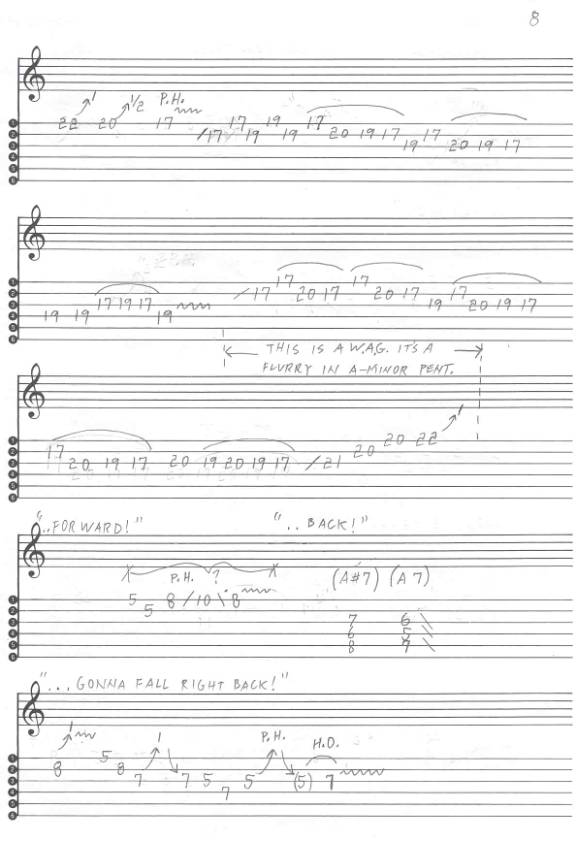 8
1 1/2 P.H.
22 20 17 /17 17 19 19 19 17 20 19 17 19 17 20 19 17
19 19 17 19 17 19 /17 17 20 17 17 20 17 19 17 20 19 17
THIS IS A W.A.G. IT'S A
FLURRY IN A-MINOR PENT.
1
17 20 19 17 20 19 20 19 17 /21 20 20 22
"..FORWARD!" "..BACK!"
P.H. ? (A#7) (A7)
5 5 8 /10 \ 8
7 6
6 5
8 7
"...GONNA FALL RIGHT BACK!"
1 1 P.H. H.O.
8 5 8 7 7 5 7 5 (5) 7